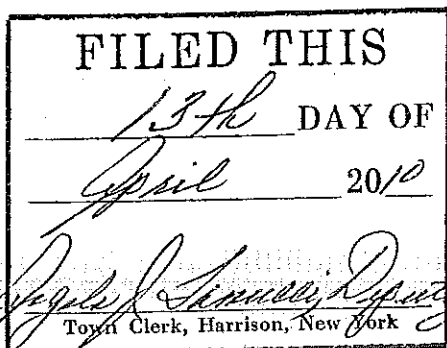 FILED THIS
13th DAY OF
April 2010
J Deputy
Town Clerk, Harrison, New York